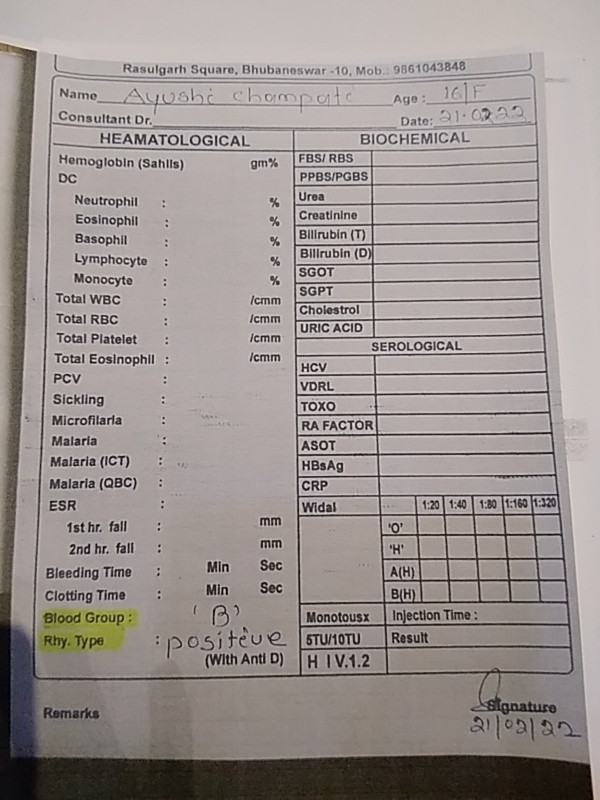 Rasulgarh Square, Bhubaneswar -10, Mob.: 9861043848
Name Ayushi Champati Age : 16/F
Consultant Dr. Date: 21.02.22
HEAMATOLOGICAL
Hemoglobin (Sahlis) gm%
DC
Neutrophil : %
Eosinophil : %
Basophil : %
Lymphocyte : %
Monocyte : %
Total WBC : /cmm
Total RBC : /cmm
Total Platelet : /cmm
Total Eosinophil : /cmm
PCV :
Sickling :
Microfilaria :
Malaria :
Malaria (ICT) :
Malaria (QBC) :
ESR :
1st hr. fall : mm
2nd hr. fall : mm
Bleeding Time : Min Sec
Clotting Time : Min Sec
Blood Group : 'B'
Rhy. Type : positive
(With Anti D)
BIOCHEMICAL
FBS/ RBS
PPBS/PGBS
Urea
Creatinine
Bilirubin (T)
Bilirubin (D)
SGOT
SGPT
Cholestrol
URIC ACID
SEROLOGICAL
HCV
VDRL
TOXO
RA FACTOR
ASOT
HBsAg
CRP
Widal 1:20 1:40 1:80 1:160 1:320
'O'
'H'
A(H)
B(H)
Monotousx Injection Time :
5TU/10TU Result
H I V.1.2
Remarks
Signature
21/02/22